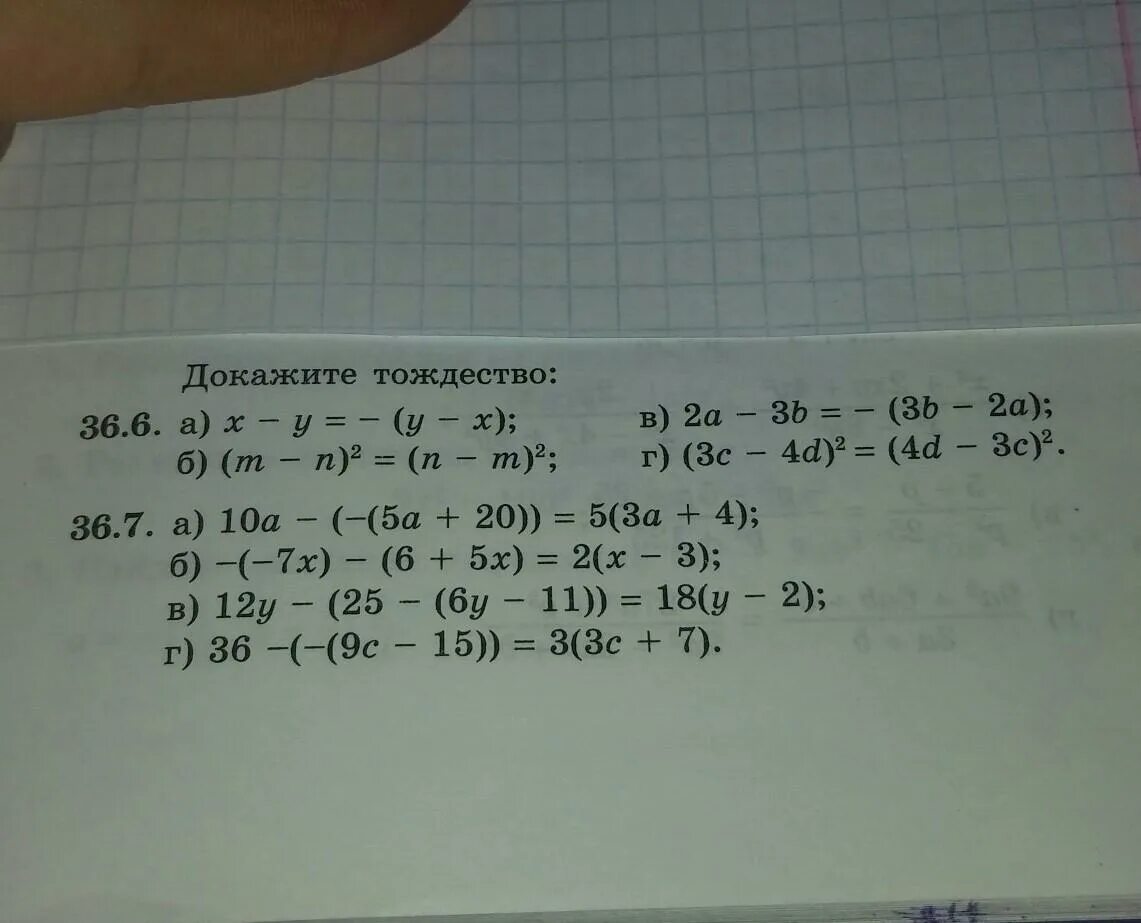 Докажите тождество:
36.6. а) x − y = − (y − x); в) 2a − 3b = − (3b − 2a);
б) (m − n)² = (n − m)²; г) (3c − 4d)² = (4d − 3c)².
36.7. а) 10a − (−(5a + 20)) = 5(3a + 4);
б) −(−7x) − (6 + 5x) = 2(x − 3);
в) 12y − (25 − (6y − 11)) = 18(y − 2);
г) 36 −(−(9c − 15)) = 3(3c + 7).